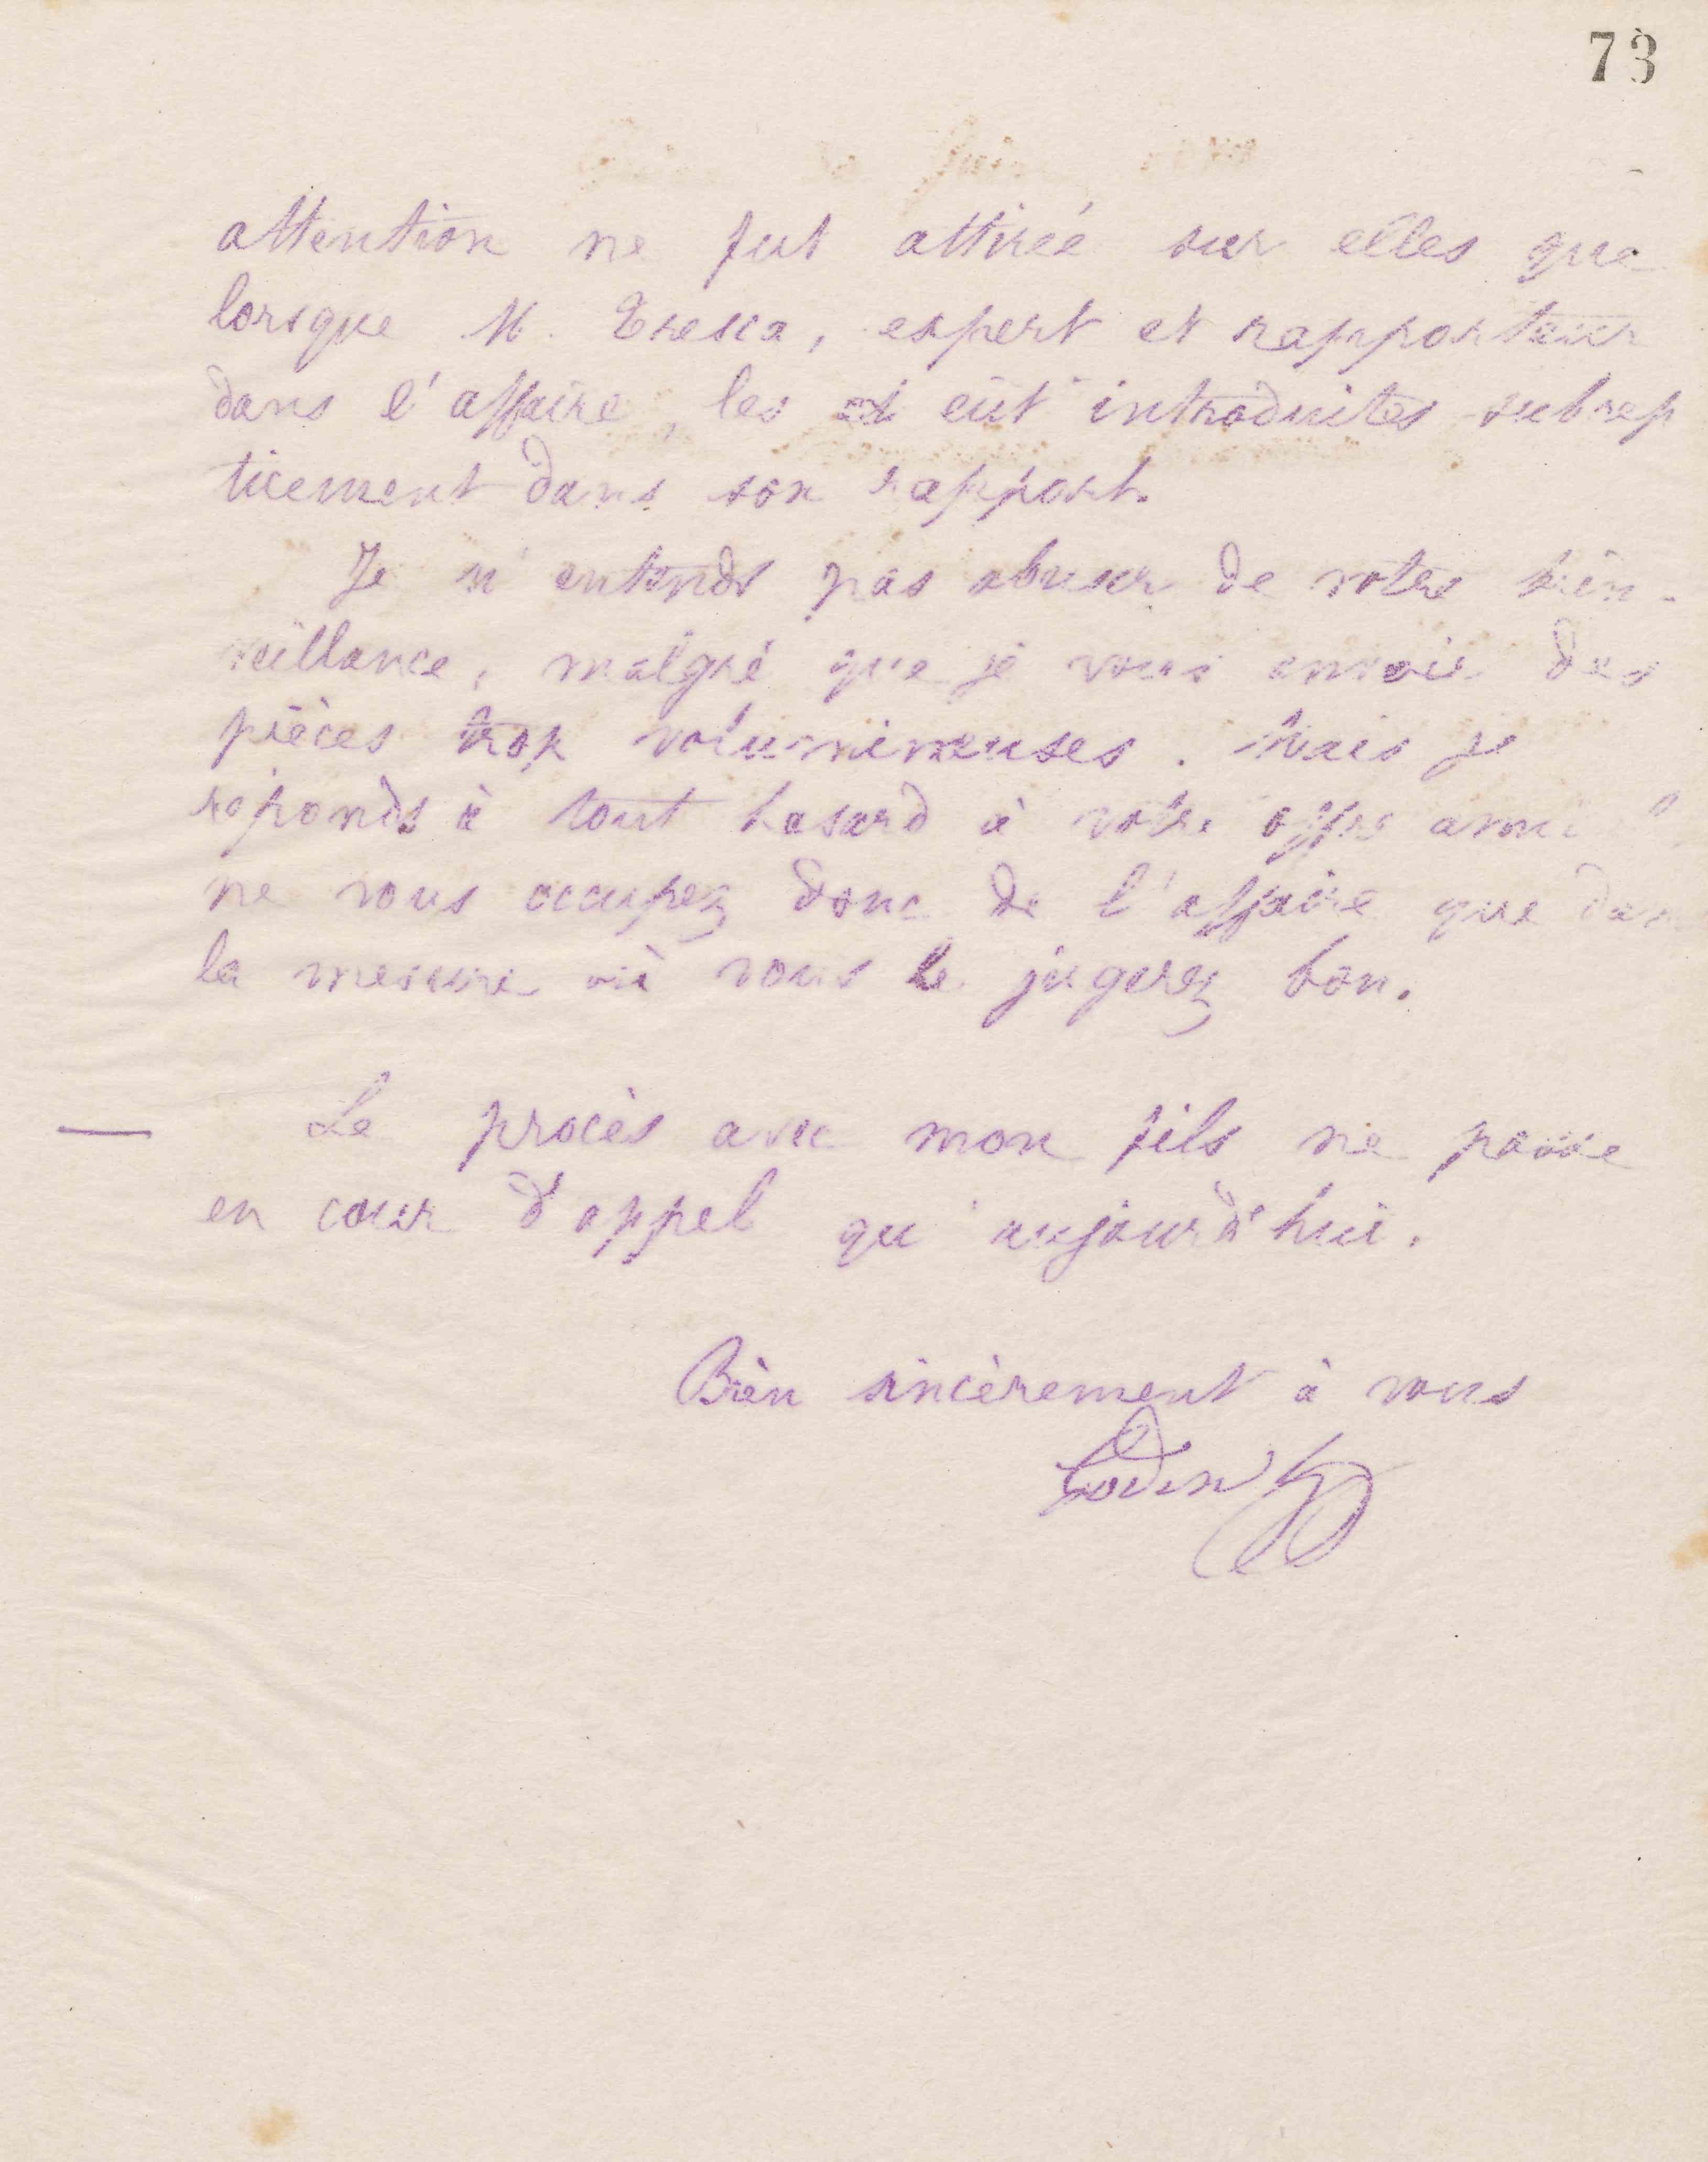 73
attention ne fut attirée sur elles que
lorsque M. Tresca, expert et rapporteur
dans l'affaire, les eût introduites subrep
ticement dans son rapport.
Je n'entends pas abuser de votre bien-
veillance, malgré que je vous envoie des
pièces trop volumineuses. Mais je
réponds à tout hasard à votre offre
ne vous occupez donc de l'affaire que dan
la mesure où vous le jugerez bon.
— Le procès avec mon fils ne passe
en cour d'appel qu'aujourd'hui.
Bien sincèrement à vous
Godin